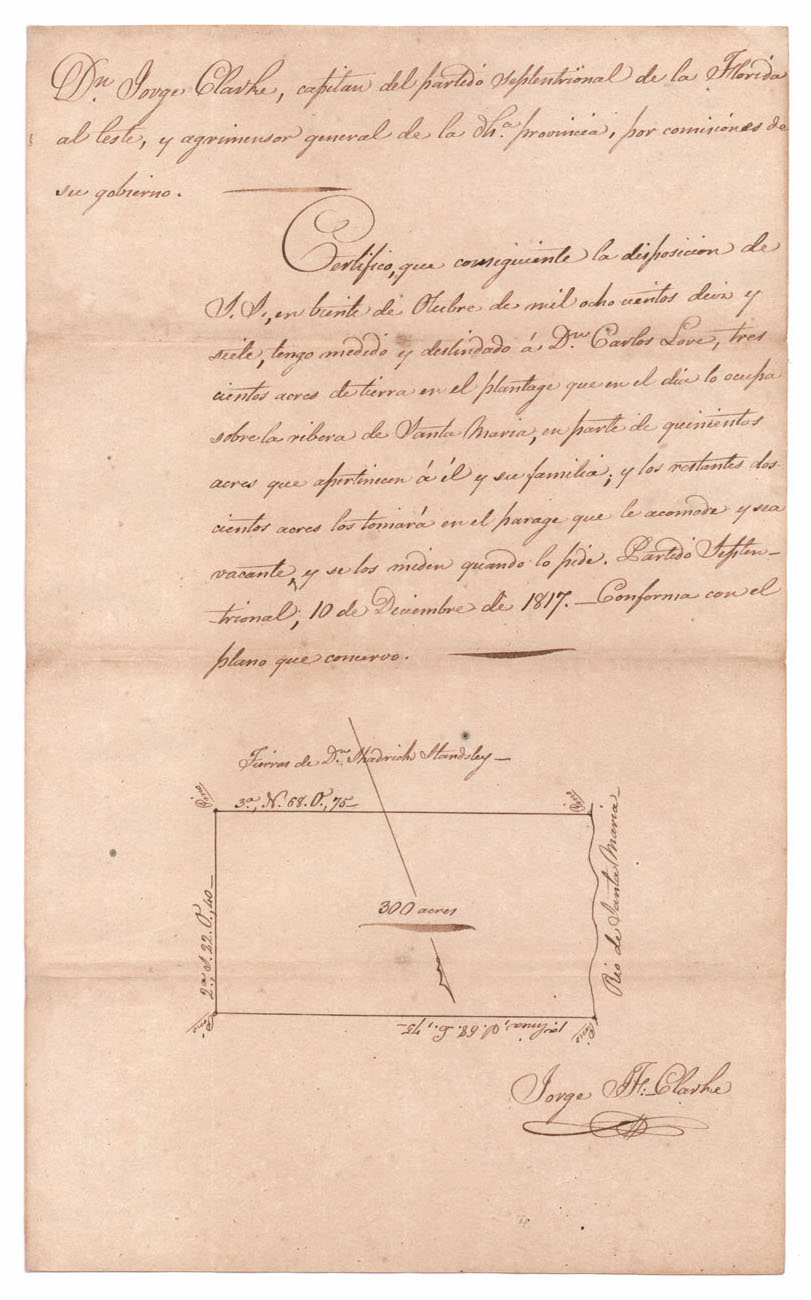 Dn. Jorge Clarke, capitan del partido septentrional de la Florida
al leste, y agrimensor general de la dha. provincia, por comisiones de
su gobierno.
Certifico, que consiguiente la disposicion de
S. S., en biente de Otubre de mil ocho cientos deiz y
siete, tengo medido y deslindado á Dn. Carlos Love, tres
cientos acres de tierra en el plantage que en el dia lo ocupa
sobre la ribera de Santa Maria, en parte de quinientos
acres que apertinecen á él y su familia; y los restantes dos
cientos acres los tomará en el parage que le acomode y sea
vacante, y se los miden quando lo pide. Partido Septen-
trional, 10 de Diciembre de 1817. — Conforma con el
plano que concervo.
Tierras de Dn. Shadrich Standsley —
Pino
3a., N. 68. O., 75 —
Pino
Rio de Santa Maria —
300 acres
2a., S. 22. O., 40 —
Pino
1a. linia, S. 68. E., 75 —
Pino
Jorge J. F. Clarke